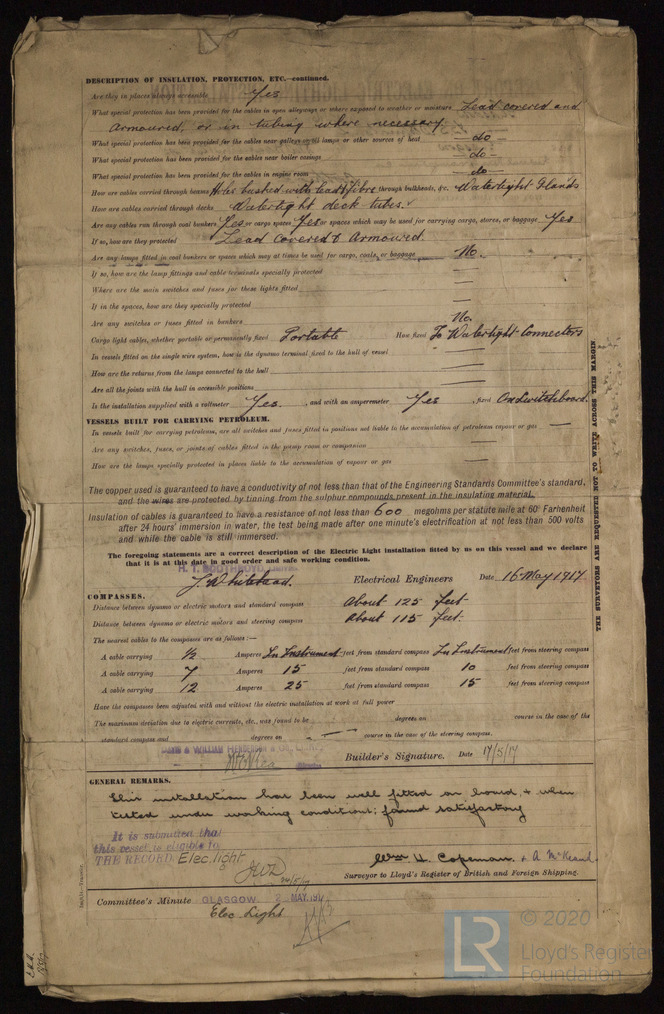 DESCRIPTION OF INSULATION, PROTECTION, ETC.—continued.
Are they in places always accessible Yes
What special protection has been provided for the cables in open alleyways or others exposed to weather or moisture Lead covered and
Armoured, or in tubing where necessary
What special protection has been provided for the cables near galleys or oil lamps or other sources of heat — do —
What special protection has been provided for the cables near boiler casings — do —
What special protection has been provided for the cables in engine room — do —
How are cables carried through beams Holes bushed with lead & fibre through bulkheads, &c. Watertight Glands
How are cables carried through decks Watertight deck tubes.
Are any cables run through coal bunkers Yes or cargo spaces Yes or spaces which may be used for carrying cargo, stores, or baggage Yes
If so, how are they protected Lead Covered & Armoured.
Are any lamps fitted in coal bunkers or spaces which may at times be used for cargo, coals, or baggage No.
If so, how are the lamp fittings and cable terminals specially protected —
Where are the main switches and fuses for these lights fitted —
If in the spaces, how are they specially protected —
Are any switches or fuses fitted in bunkers No.
Cargo light cables, whether portable or permanently fixed Portable How fixed To Watertight Connectors
In vessels fitted on the single wire system, how is the dynamo terminal fixed to the hull of vessel —
How are the returns from the lamps connected to the hull —
Are all the joints with the hull in accessible positions —
Is the installation supplied with a voltmeter Yes. , and with an amperemeter Yes , fixed On Switchboard.
VESSELS BUILT FOR CARRYING PETROLEUM.
In vessels built for carrying petroleum, are all switches and fuses fitted in positions not liable to the accumulation of petroleum vapour or gas —
Are any switches, fuses, or joints of cables fitted in the pump room or companion —
How are the lamps specially protected in places liable to the accumulation of vapour or gas —
The copper used is guaranteed to have a conductivity of not less than that of the Engineering Standards Committee's standard,
and the wires are protected by tinning from the sulphur compounds present in the insulating material.
Insulation of cables is guaranteed to have a resistance of not less than 600 megohms per statute mile at 60° Farhenheit
after 24 hours' immersion in water, the test being made after one minute's electrification at not less than 500 volts
and while the cable is still immersed.
The foregoing statements are a correct description of the Electric Light installation fitted by us on this vessel and we declare
that it is at this date in good order and safe working condition.
H. T. BOOTHROYD, LIMITED
J. Whitehead. Electrical Engineers Date 16 May 1917
COMPASSES.
Distance between dynamo or electric motors and standard compass About 125 feet.
Distance between dynamo or electric motors and steering compass About 115 feet.
The nearest cables to the compasses are as follows:—
A cable carrying ½ Amperes In Instrument feet from standard compass In Instrument feet from steering compass
A cable carrying 7 Amperes 15 feet from standard compass 10 feet from steering compass
A cable carrying 12 Amperes 25 feet from standard compass 15 feet from steering compass
Have the compasses been adjusted with and without the electric installation at work at full power
The maximum deviation due to electric currents, etc., was found to be degrees on course in the case of the
standard compass and degrees on course in the case of the steering compass.
DAVID & WILLIAM HENDERSON & CO., LIMD.
Builder's Signature. Date 17/5/17
GENERAL REMARKS.
This installation has been well fitted on board, & when
tested under working conditions; found satisfactory
It is submitted that
this vessel is eligible for
THE RECORD. Elec. light
Wm H. Copeman. & A McKeand.
Surveyor to Lloyd's Register of British and Foreign Shipping.
Committee's Minute GLASGOW MAY 1917
Elec Light
THE SURVEYORS ARE REQUESTED NOT TO WRITE ACROSS THIS MARGIN
LR
© 2020
Lloyd's Register
Foundation